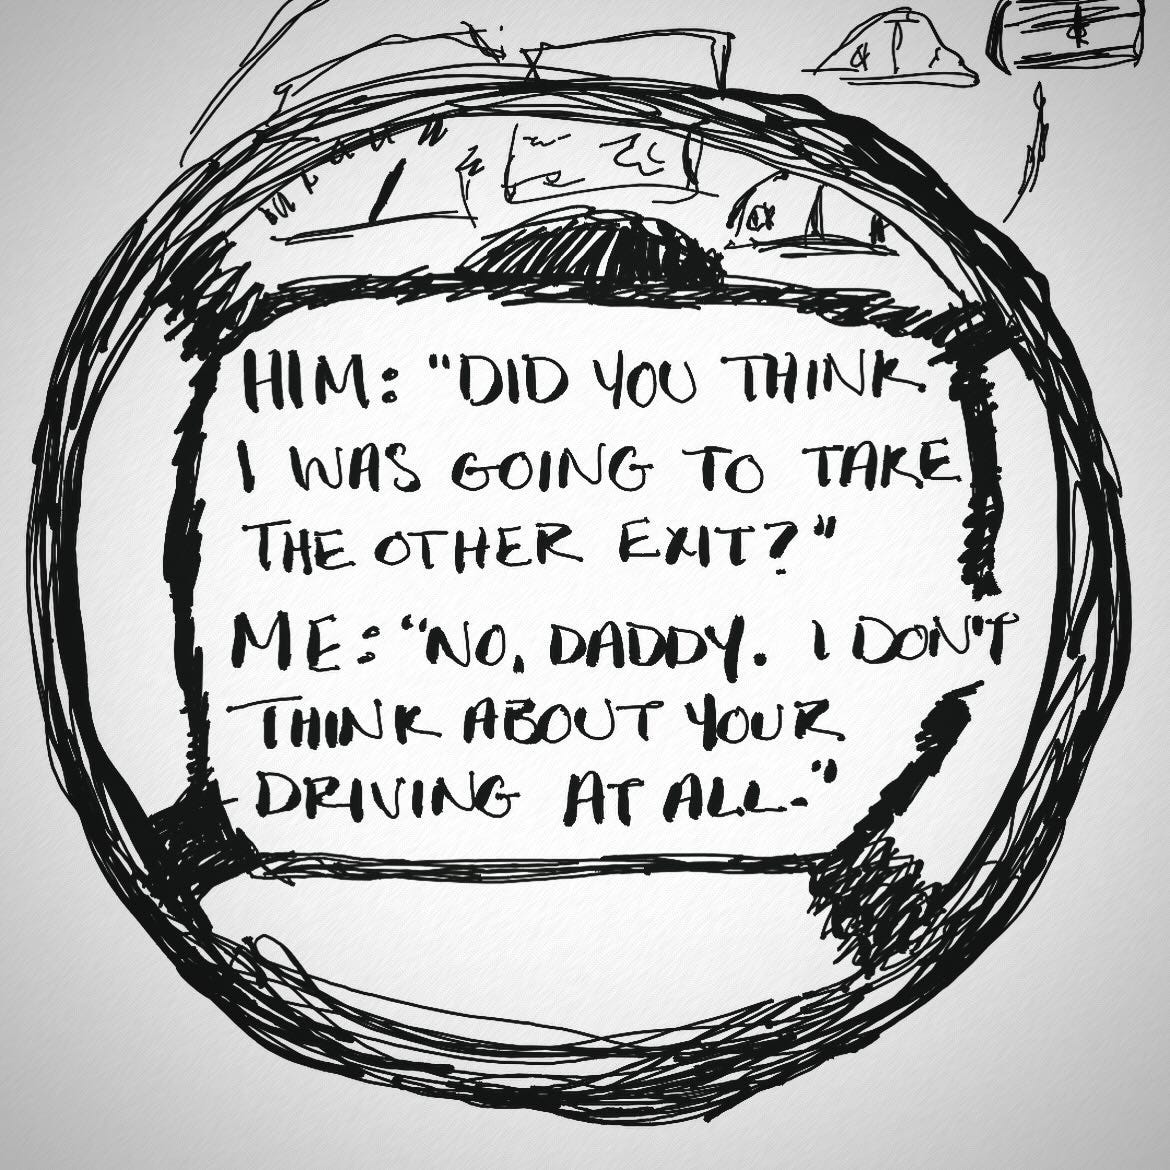 HIM: "DID YOU THINK
I WAS GOING TO TAKE
THE OTHER EXIT?"
ME: "NO, DADDY. I DON'T
THINK ABOUT YOUR
DRIVING AT ALL."